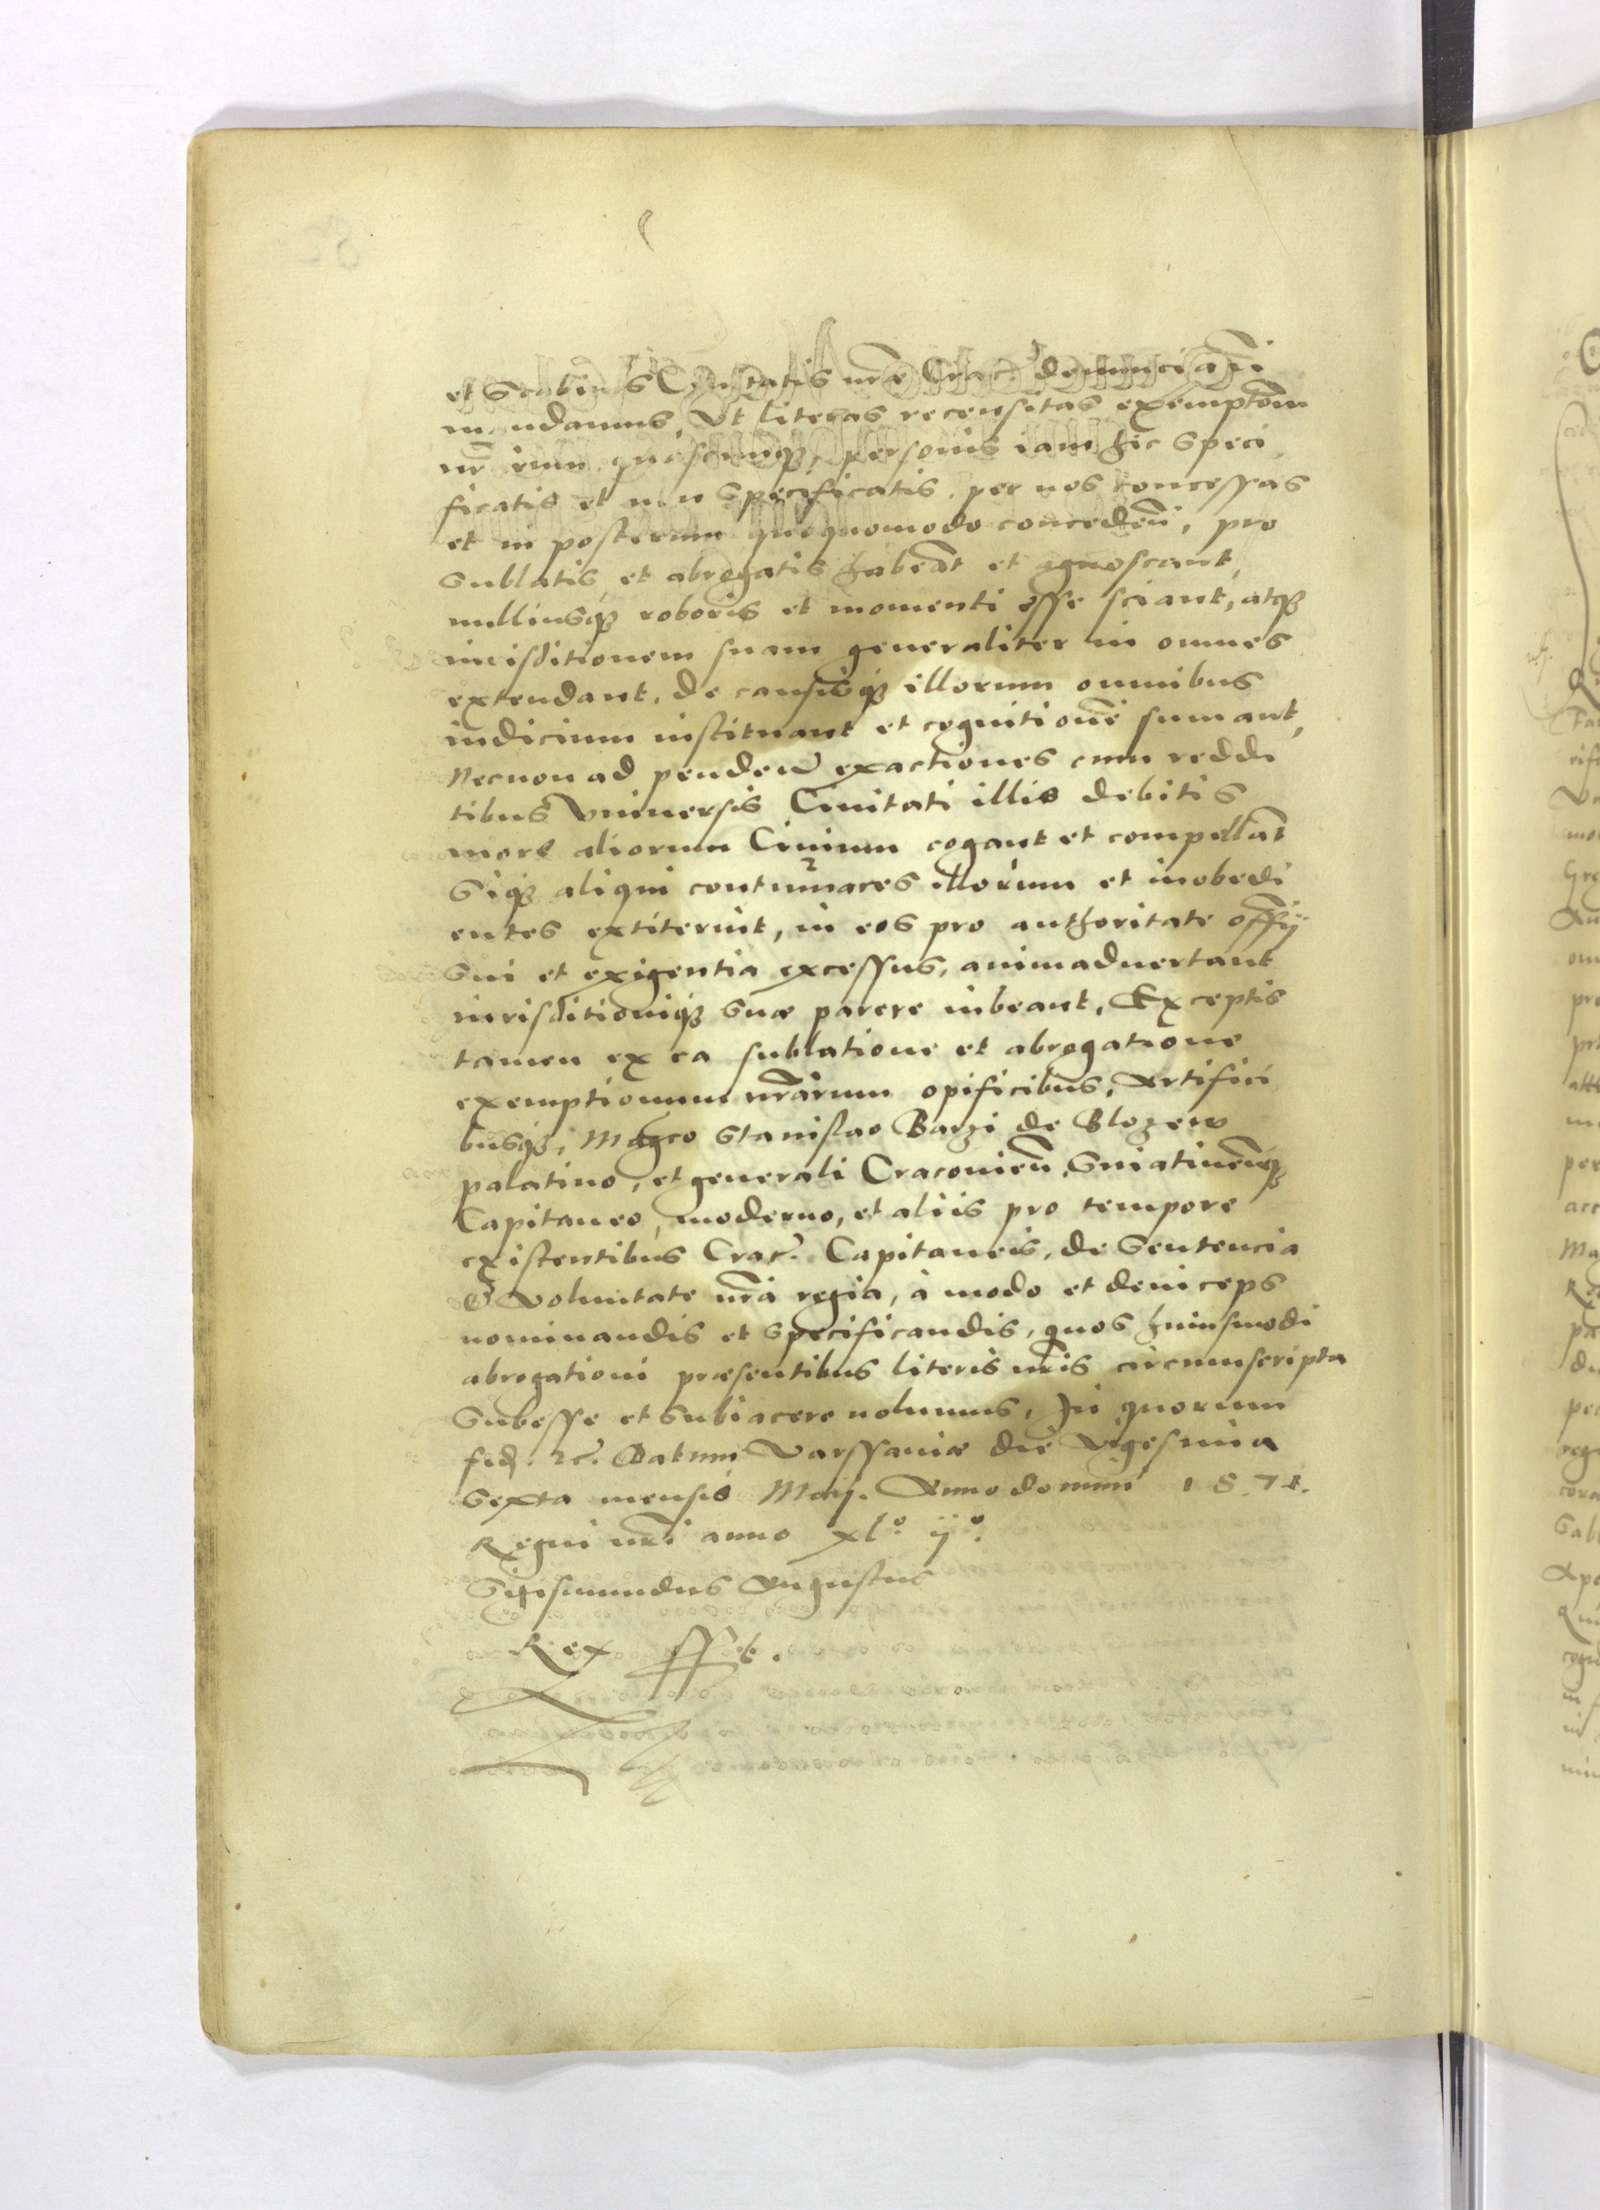 et Scabinis Ciuitatis nrae Crac. denunciam
mandamus, Vt literas recensitas exemptom
nrarum quascunq, personis iam hic speci
ficatis et non specificatis, per nos concessas
et in posterum quoquomodo concedeñ, pro
sublatis et abrogatis habeāt et agnoscant,
nulliusq roboris et momenti esse sciant, atq
iurisditionem suam generaliter in omnes
extendant, de causisq illorum omnibus
iudicium instituant et cognitionē sumant,
Necnon ad pendeñ exactiones cum reddi
tibus vniuersis Ciuitati illis debitis
more aliorum Ciuium cogant et compellāt
Siq aliqui contumaces illorum et inobedi
entes extiterint, in eos pro authoritate offīj
sui et exigentia excessus, animaduertant
iurisditioniq suae parere iubeant, Exceptis
tamen ex ea sublatione et abrogatione
exemptionum nrārum opificibus, Artifici
busq, Magco Stanislao Barzi de Blozew
palatino, et generali Cracouieñ, Sniatineñq
Capitaneo, moderno, et aliis pro tempore
existentibus Crac. Capitaneis, de Sentencia
& Voluntate nrā regia, à modo et deinceps
nominandis et specificandis, quos huiusmodi
abrogationi praesentibus literis nrīs circumscripta
Subesse et subiacere nolumus, In quorum
fid. &c. Datum Varssauiae die Vigesima
Sexta mensis Maij. Anno domini 1571.
Regni nrī anno xlº ijº.
Sigismundus Augustus
Rex sst.